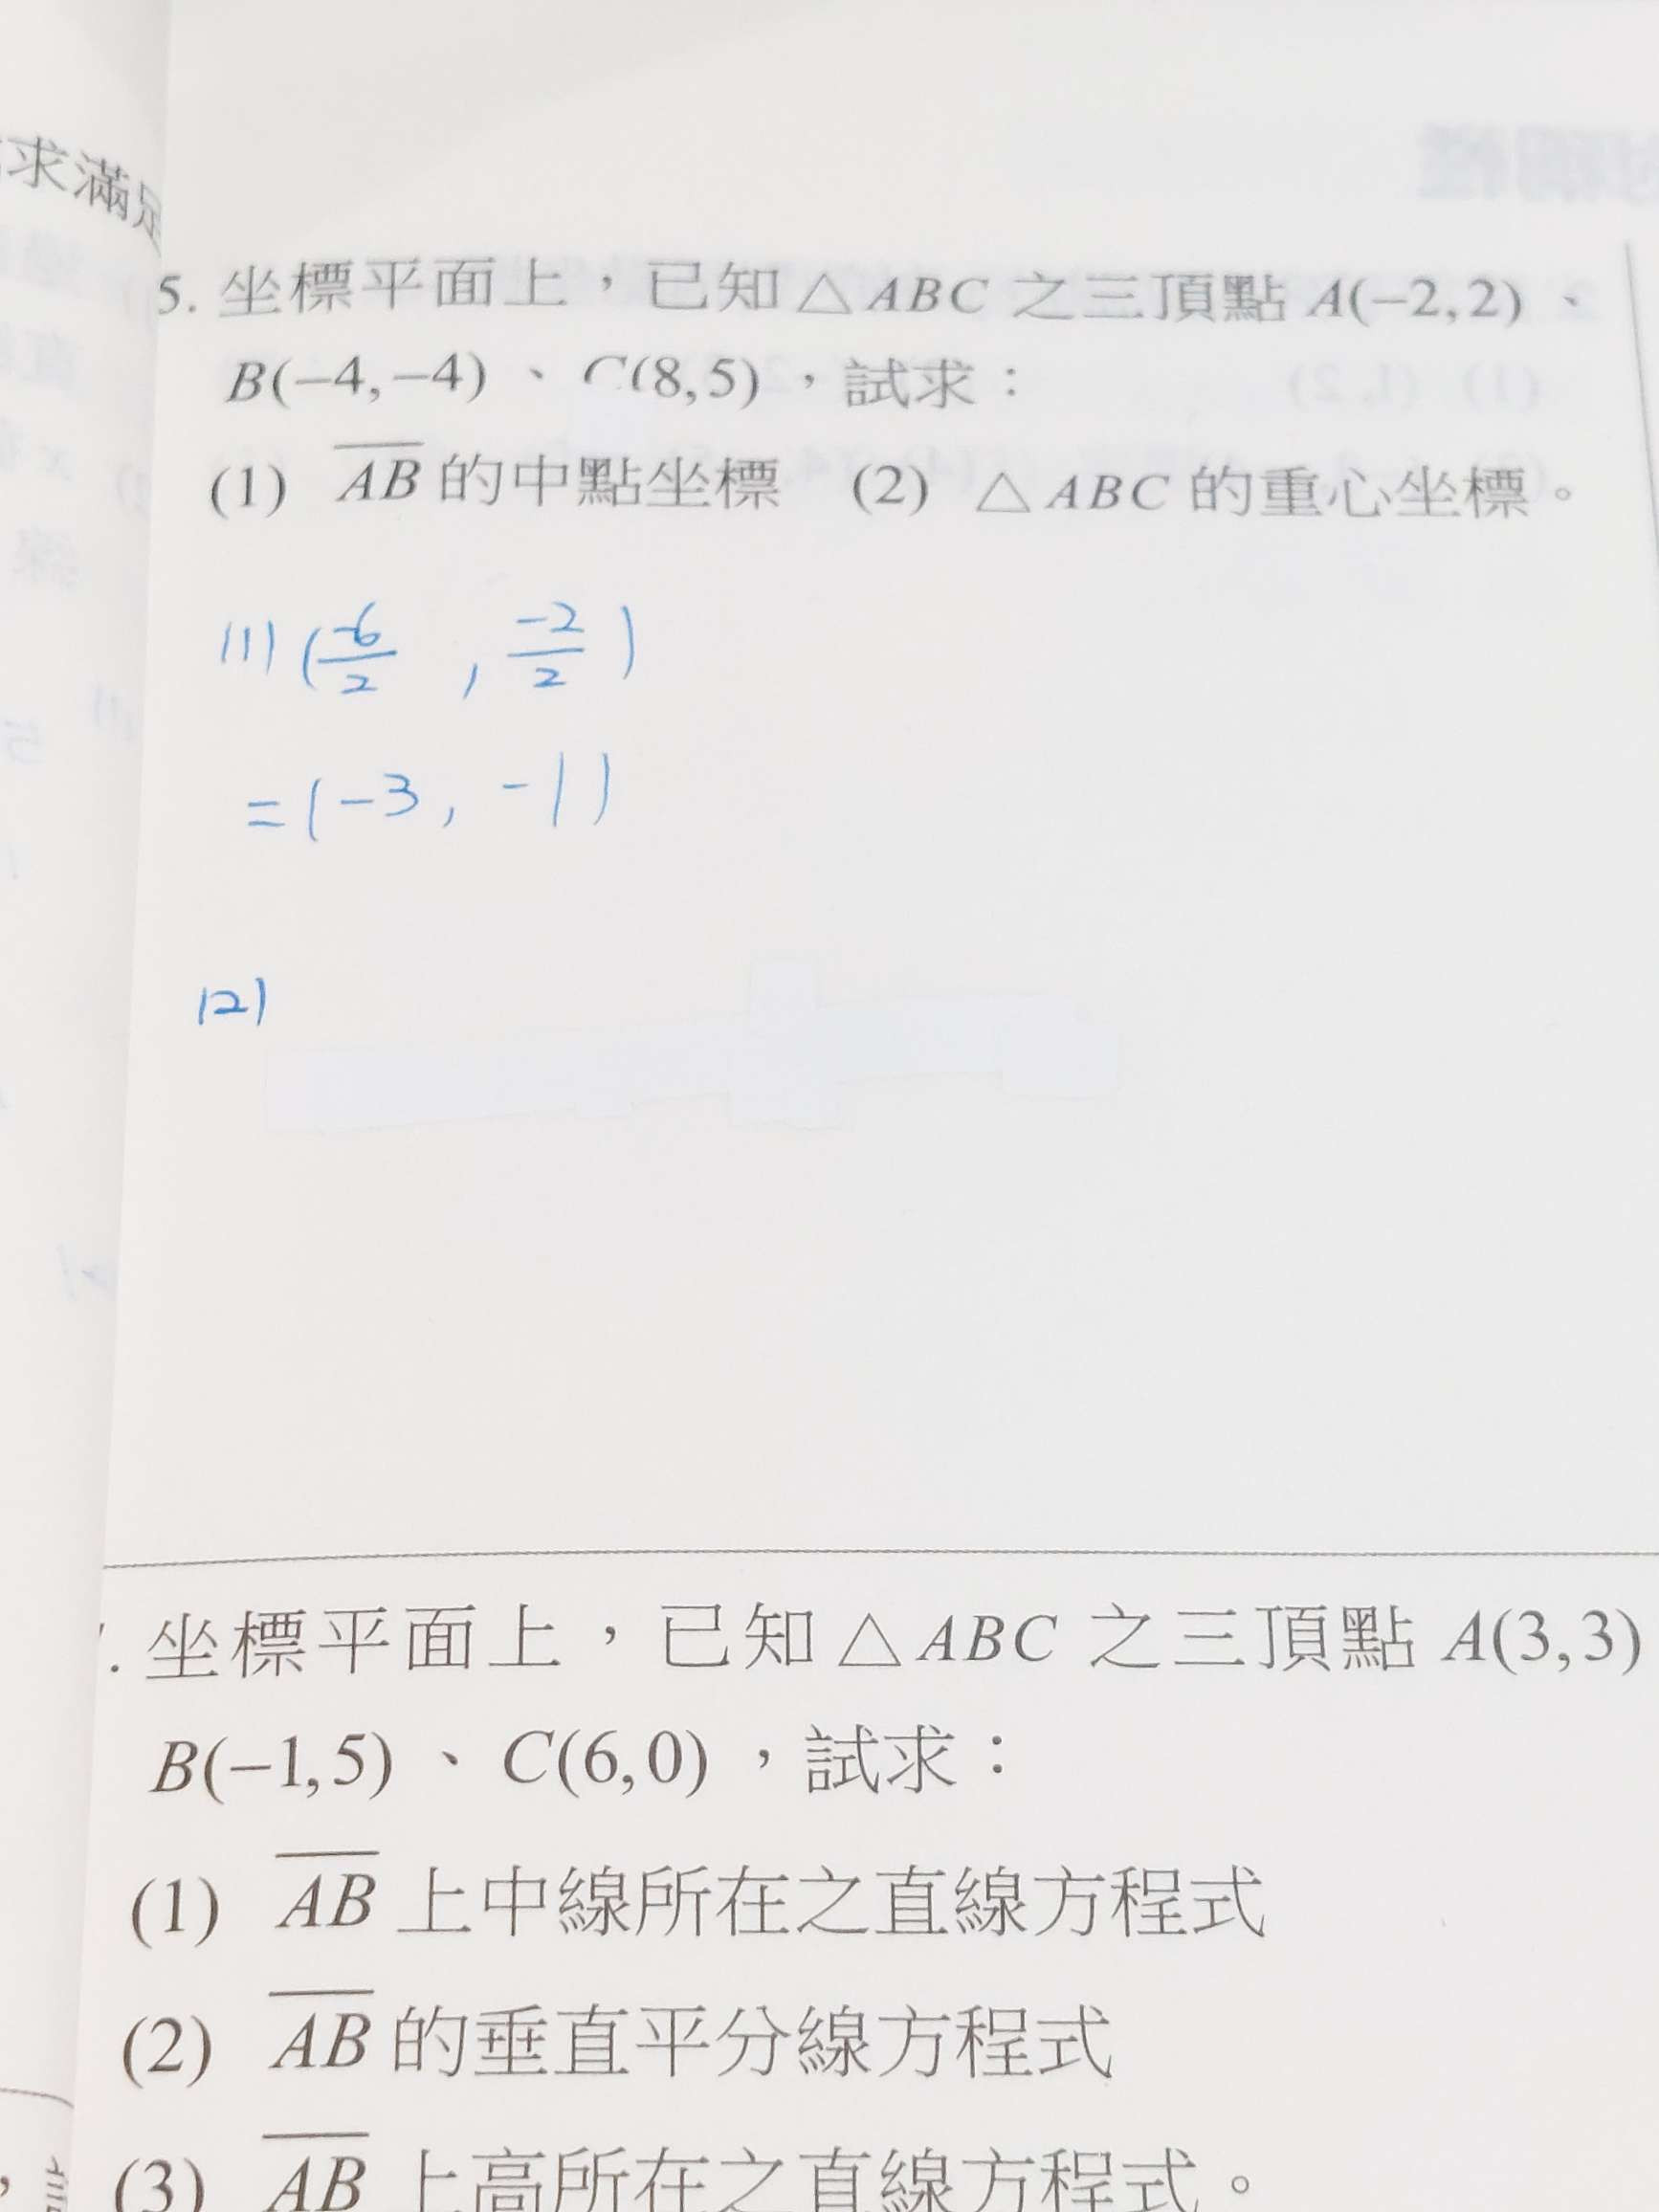 求滿足
5. 坐標平面上，已知△ABC 之三頂點 A(−2,2)、
B(−4,−4)、C(8,5)，試求：
(1) AB 的中點坐標 (2) △ABC 的重心坐標。
(1) (-6/2 , -2/2)
= (-3, -1)
(2)
. 坐標平面上，已知△ABC 之三頂點 A(3,3)
B(−1,5)、C(6,0)，試求：
(1) AB 上中線所在之直線方程式
(2) AB 的垂直平分線方程式
(3) AB 上高所在之直線方程式。